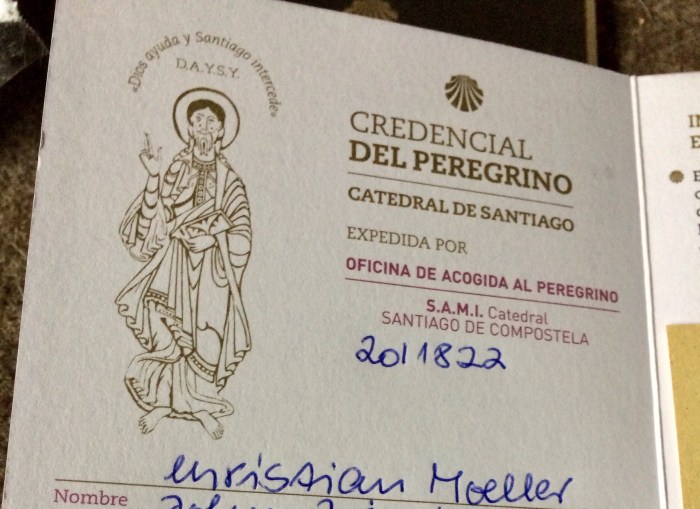 «Dios ayuda y Santiago intercede»
D.A.Y.S.Y.
CREDENCIAL
DEL PEREGRINO
CATEDRAL DE SANTIAGO
EXPEDIDA POR
OFICINA DE ACOGIDA AL PEREGRINO
S.A.M.I. Catedral
SANTIAGO DE COMPOSTELA
2011822
Christian Moeller
Nombre